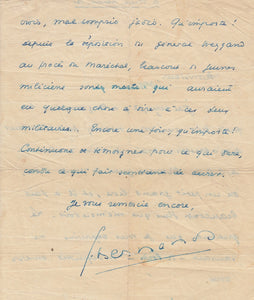 crois, mal compris
Qu'importe !
depuis la déposition du général Weygand
au procès du maréchal, beaucoup de jeunes
miliciens sont morts qui auraient
eu quelque chose à dire à ces deux
militaires. Encore une fois, qu'importe !
Continuons de témoigner pour ce qui dure,
contre ce qui fait semblant de durer.
Je vous remercie encore,